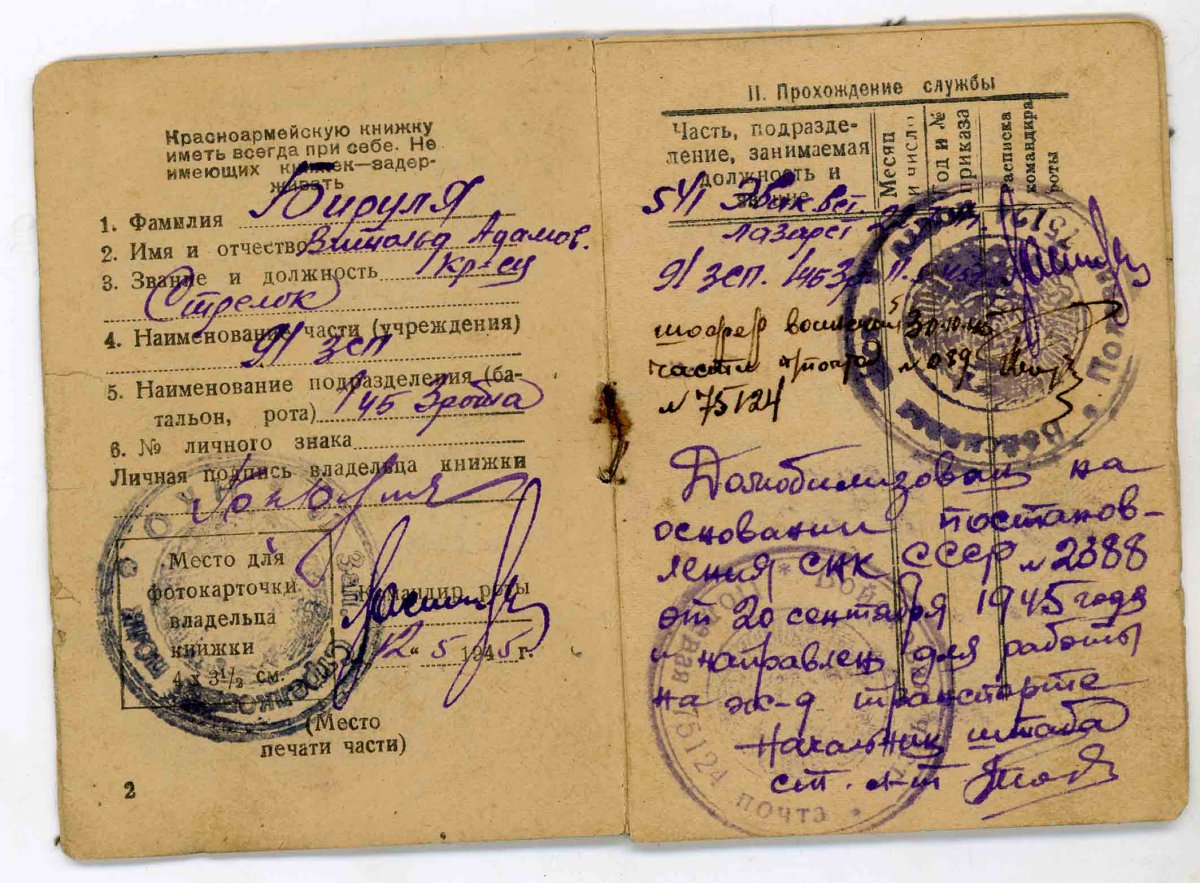 Красноармейскую книжку
иметь всегда при себе. Не
имеющих книжек—задер-
живать
1. Фамилия Бируля
2. Имя и отчество Витольд Адамов.
3. Звание и должность кр-ец
Стрелок
4. Наименование части (учреждения)
91 зсп
5. Наименование подразделения (ба-
тальон, рота) 1 сб 3 рота
6. № личного знака
Личная подпись владельца книжки
Место для
фотокарточки
владельца
книжки
4 х 3½ см.
Командир роты
"12" 5 1945 г.
(Место
печати части)
2
II. Прохождение службы
Часть, подразде-
ление, занимаемая
должность и
звание
Месяц
и число
Год и №
приказа
Расписка
командира
роты
541 Эвак. Вет.
лазарет
91 зсп.
шофер воинской 30.10.45
части почта № 089
№ 75124
Демобилизован на
основании постанов-
ления СНК СССР № 2088
от 20 сентября 1945 года
и направлен для работы
на ж-д транспорте
Начальник штаба
ст. л-т
Полевая 75124 почта